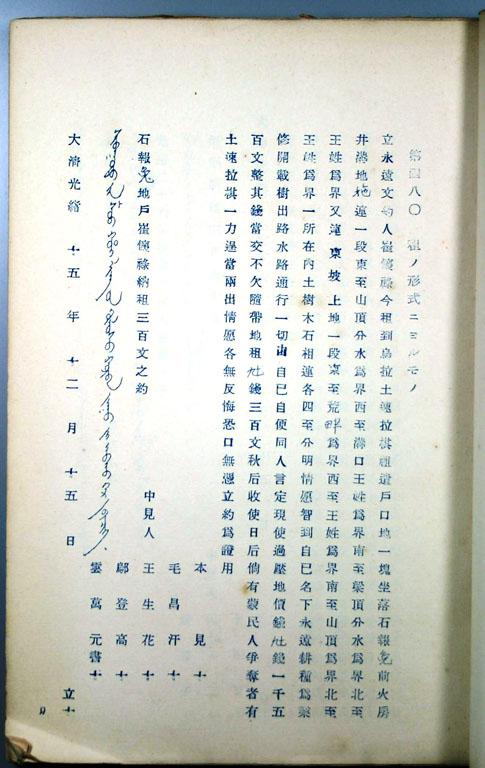 第四八〇 租ノ形式ニヨルモノ
立永遠文約人崔優祿今租到烏拉土速拉祺祖遺戶口地一塊坐落石報兔前火房
井溝地地連一段東至山頂分水爲界西至溝口王姓爲界南至梁頂分水爲界北至
王姓爲界又連東坡上地一段東至荒畔爲界西至王姓爲界南至山頂爲界北至
王姓爲界一所在內土樹木石相連各四至分明情愿智到自已名下永遠耕種爲業
修開栽樹出路水路通行一切由自已自便同人言定現使過壓地價錢 錢一千五
百文整其錢當交不欠隨帶地租 錢三百文秋后收使日后倘有蒙民人爭奪者有
土速拉祺一力逞當兩出情愿各無反悔恐口無憑立約爲證用
石報兔地戶崔優祿納租三百文之約
大淸光緖 十五年十二月十五日 立十
中見人
本見十
毛昌汗十
王生花十
鄔登高十
雲萬元書十